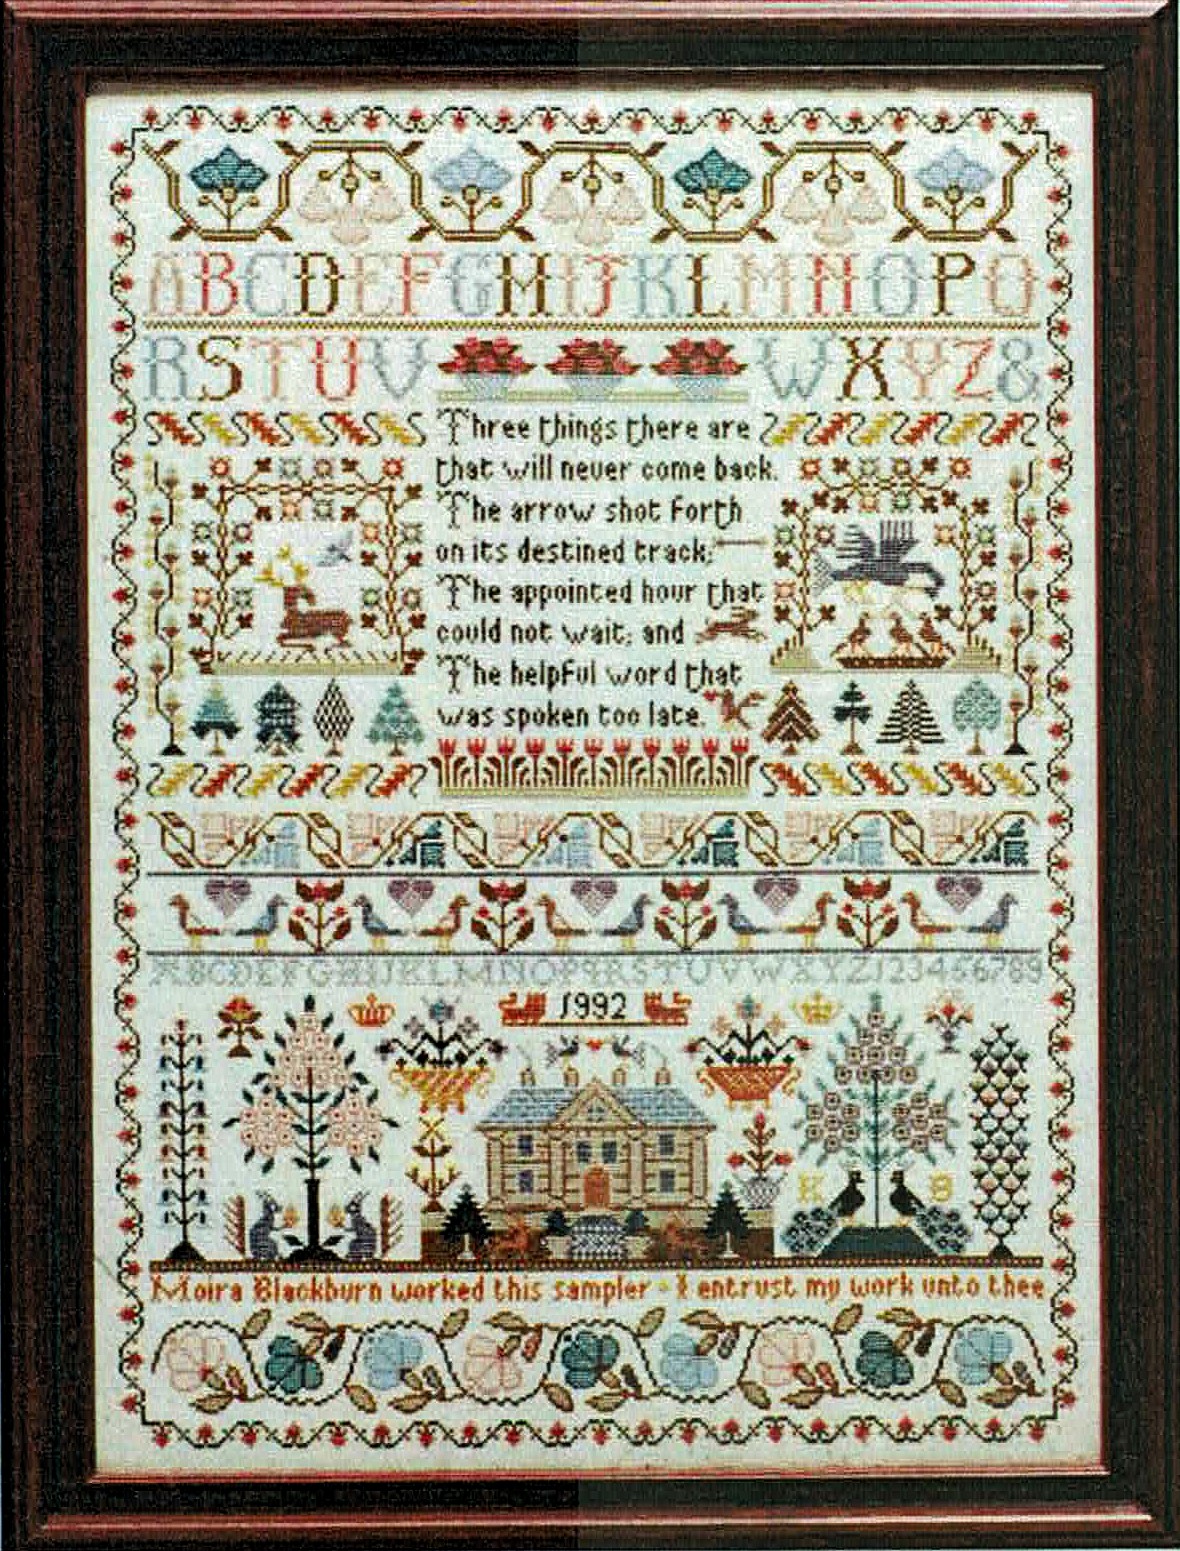 ABCDEFGHIJKLMNOPQ
RSTUV WXYZ&
Three things there are
that will never come back.
The arrow shot forth
on its destined track;
The appointed hour that
could not wait; and
The helpful word that
was spoken too late.
ABCDEFGHIJKLMNOPQRSTUVWXYZ123456789
1992
K
Moira Blackburn worked this sampler - I entrust my work unto thee